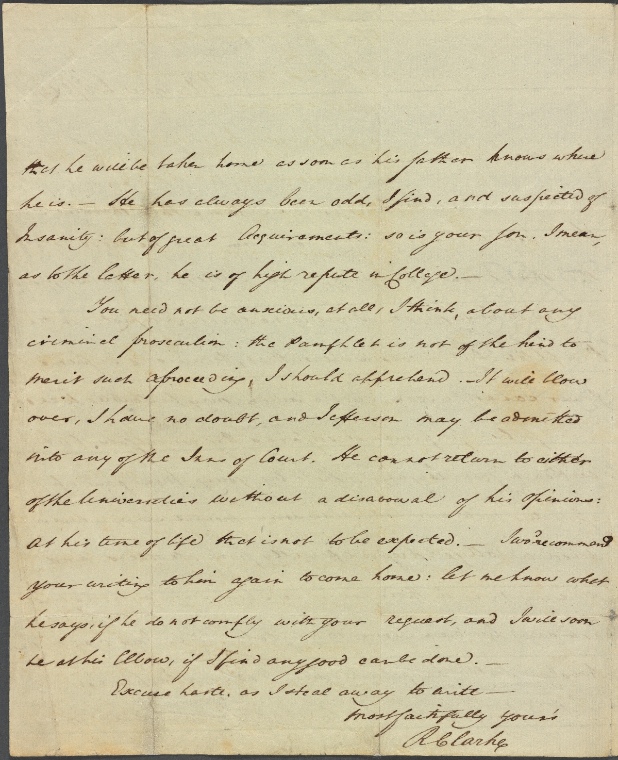 that he will be taken home as soon as his father knows where
he is. — He has always been odd, I find, and suspected of
Insanity: but of great Acquirements: so is your Son. I mean,
as to the latter, he is of high repute in College. —
You need not be anxious, at all, I think, about any
criminal prosecution: the Pamphlet is not of the kind to
merit such a proceeding, I should apprehend. — It will blow
over, I have no doubt, and Jefferson may be admitted
into any of the Inns of Court. He cannot return to either
of the Universities without a disavowal of his Opinions:
at his time of life that is not to be expected. — I wod. recommend
your writing to him again to come home: let me know what
he says, if he do not comply with your request, and I will soon
be at his Elbow, if I find any good can be done. —
Excuse haste, as I steal away to write —
most faithfully yours
R Clarke